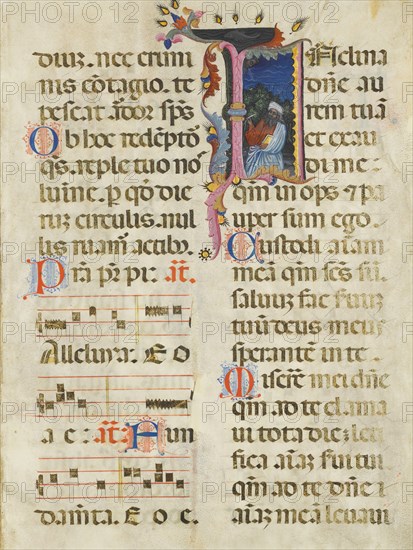 diuꝫ. nec crimi
nis cōtagio. te
pescat ārdor sp̄s
Ob hoc redēptoꝛ
qs. reple tuo nō
lumine. p qō die
rū circulis. nul
lis ruam̄ actibꝫ.
Pm̄ pr̄ pi: āt.
Alleluya. E O
a e: āt: Fun
dam̄ta. E o e.
Inclina
dn̄e au
rem tuā
et exau
di me.
qm̄ in ops ⁊ pa
uper sum ego.
Custodi aīam
meā qm̄ scs̄ sū.
saluū fac
tuū deus meus
sperantē in te.
Miserē mei dn̄e
qm̄ ad te clama
ui tota die: leti
fica aīaꝫ tui
qm̄ ad te dn̄e
aīaꝫ meā leuaui
PHOTO12